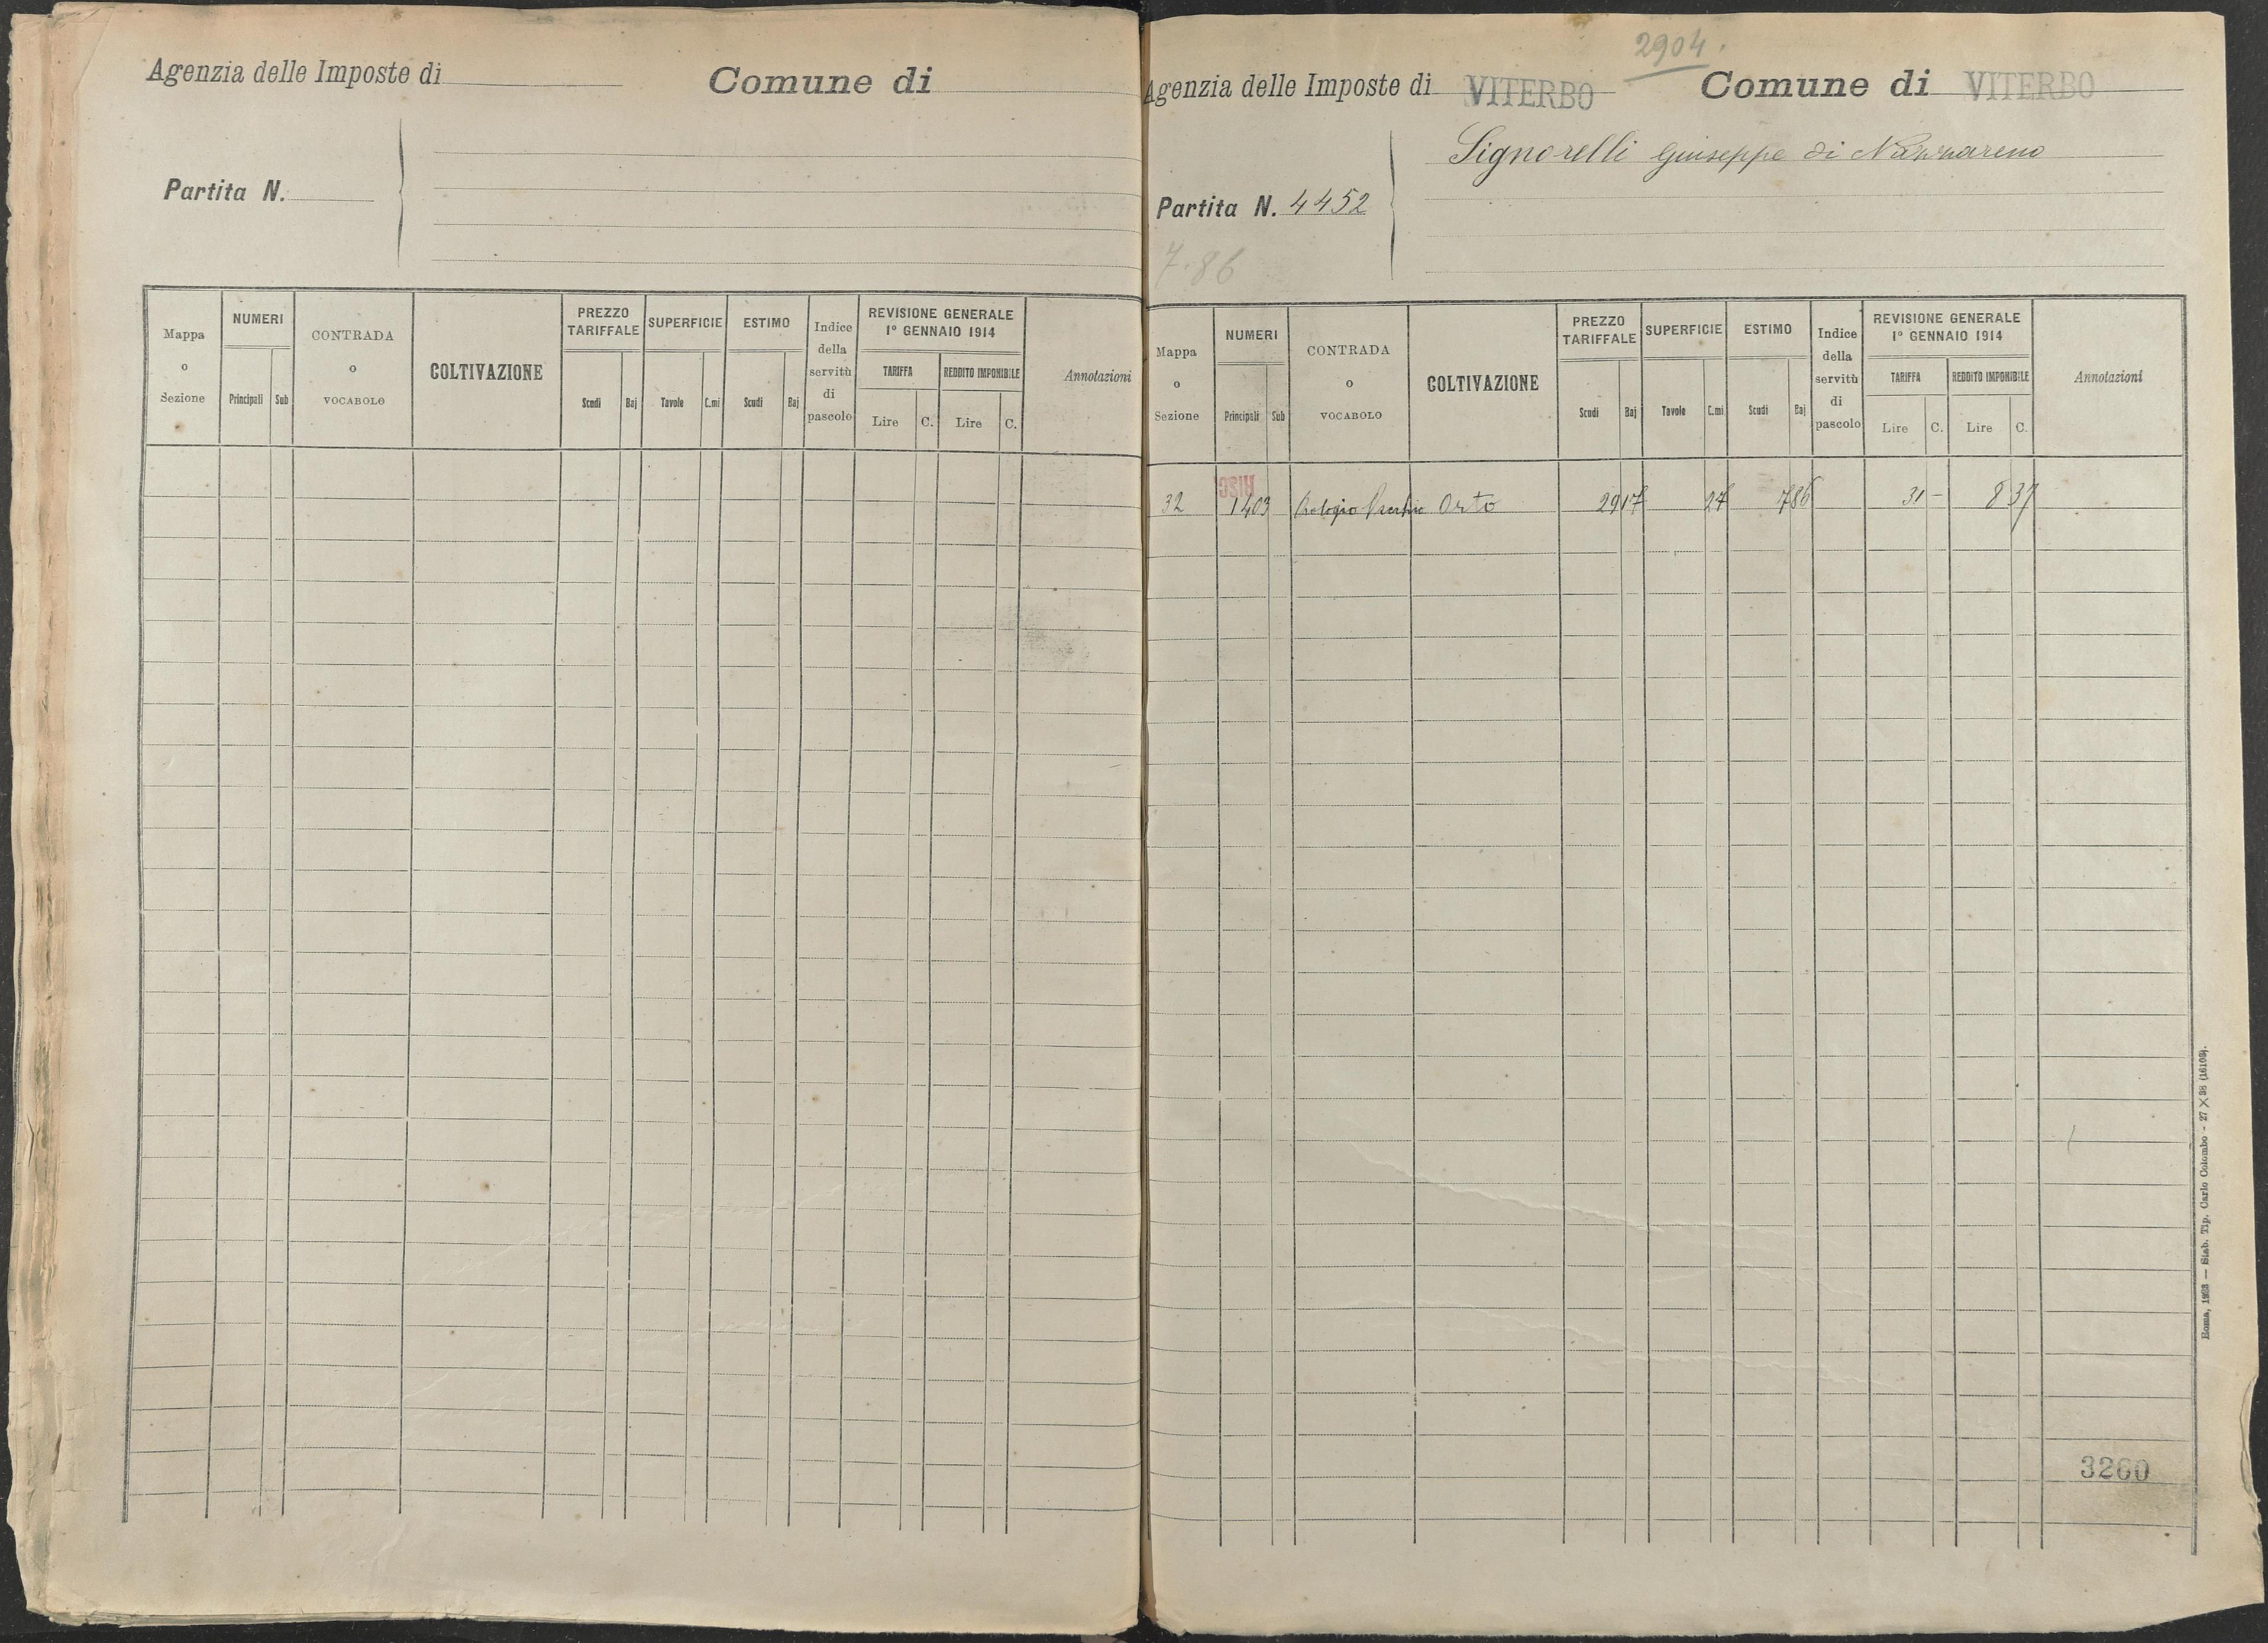 Agenzia delle Imposte di
Comune di
Partita N.
Mappa o Sezione
NUMERI
Principali Sub
CONTRADA o VOCABOLO
COLTIVAZIONE
PREZZO TARIFFALE
Scudi Baj
SUPERFICIE
Tavole C.mi
ESTIMO
Scudi Baj
Indice della servitù di pascolo
REVISIONE GENERALE
1° GENNAIO 1914
TARIFFA
Lire C.
REDDITO IMPONIBILE
Lire C.
Annotazioni
2904.
Agenzia delle Imposte di VITERBO
Comune di VITERBO
Signorelli Giuseppe di
Partita N. 4452
7.86
Mappa o Sezione
NUMERI
Principali Sub
CONTRADA o VOCABOLO
COLTIVAZIONE
PREZZO TARIFFALE
Scudi Baj
SUPERFICIE
Tavole C.mi
ESTIMO
Scudi Baj
Indice della servitù di pascolo
REVISIONE GENERALE
1° GENNAIO 1914
TARIFFA
Lire C.
REDDITO IMPONIBILE
Lire C.
Annotazioni
32 1403 Orologio Vecchio Orto 29 17 27 7 86 31 - 8 37
3260
Roma, 1923 — Stab. Tip. Carlo Colombo - 27 X 38 (16103).